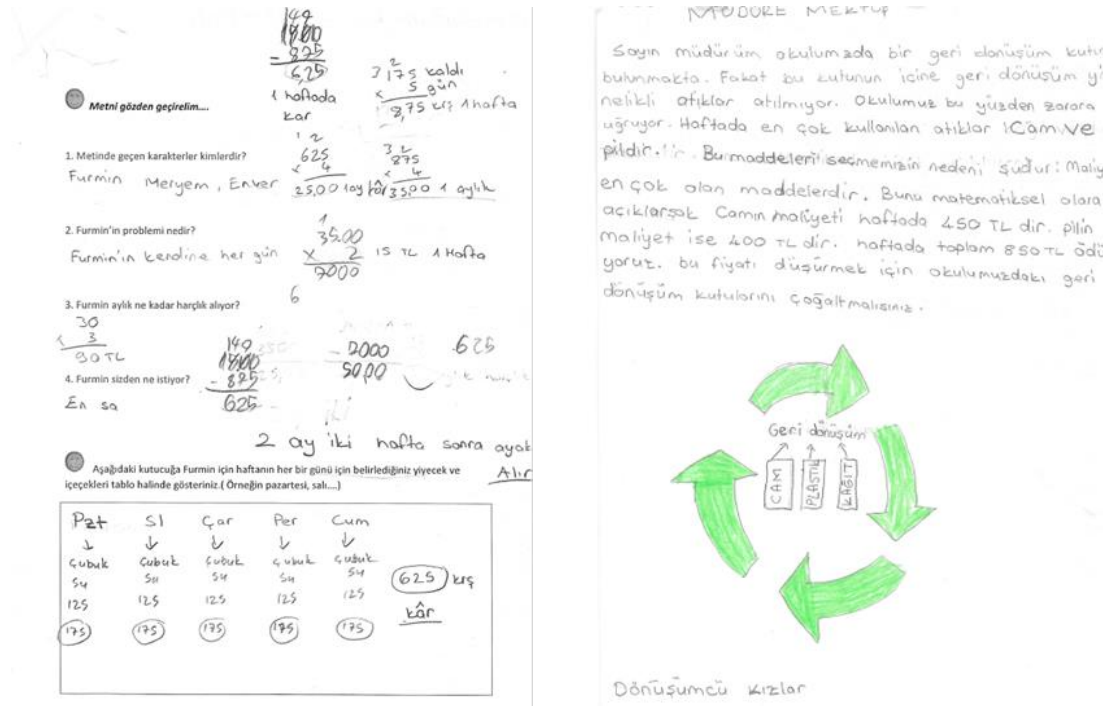 149
1500
- 825
6,25
1 haftada
kar
3,175 kaldı
x 5 gün
8,75 krş 1 hafta
Metni gözden geçirelim....
1. Metinde geçen karakterler kimlerdir?
Furmin Meryem, Enver
1 2
625
x 4
25,00 1 ay kâr
3 2
875
x 4
35,00 1 aylık
2. Furmin'in problemi nedir?
Furmin'in kendine her gün
1
35,00
x 2
7000
15 TL 1 Hafta
6
3. Furmin aylık ne kadar harçlık alıyor?
30
x 3
90 TL
4. Furmin sizden ne istiyor?
En sa
149
1500
- 875
625
- 2000
5000
625
2 ay iki hafta sonra ayak
Alır
Aşağıdaki kutucuğa Furmin için haftanın her bir günü için belirlediğiniz yiyecek ve
içecekleri tablo halinde gösteriniz.( Örneğin pazartesi, salı....)
Pzt Sl Çar Per Cum
Çubuk Çubuk Çubuk Çubuk Çubuk
su su su su su
125 125 125 125 125
175 175 175 175 175
625 krş
kâr
MÜDÜRE MEKTUP
Sayın müdürüm okulumzda bir geri dönüşüm kutu
bulunmakta. Fakat bu kutunun içine geri dönüşüm y
nelikli atıklar atılmıyor. Okulumuz bu yüzden zarara
uğruyor. Haftada en çok kullanılan atıklar Cam ve
pildir. Bu maddeleri seçmemizin nedeni şudur: Maliy
en çok olan maddelerdir. Bunu matematiksel olara
açıklarsak Camın maliyeti haftada 450 TL dir. pilin
maliyet ise 400 TL dir. haftada toplam 850 TL ödü
yoruz. bu fiyatı düşürmek için okulumuzdakı geri
dönüşüm kutularını çoğaltmalısınız.
Geri dönüşüm
CAM
PLASTİK
KAĞIT
Dönüşümcü Kızlar